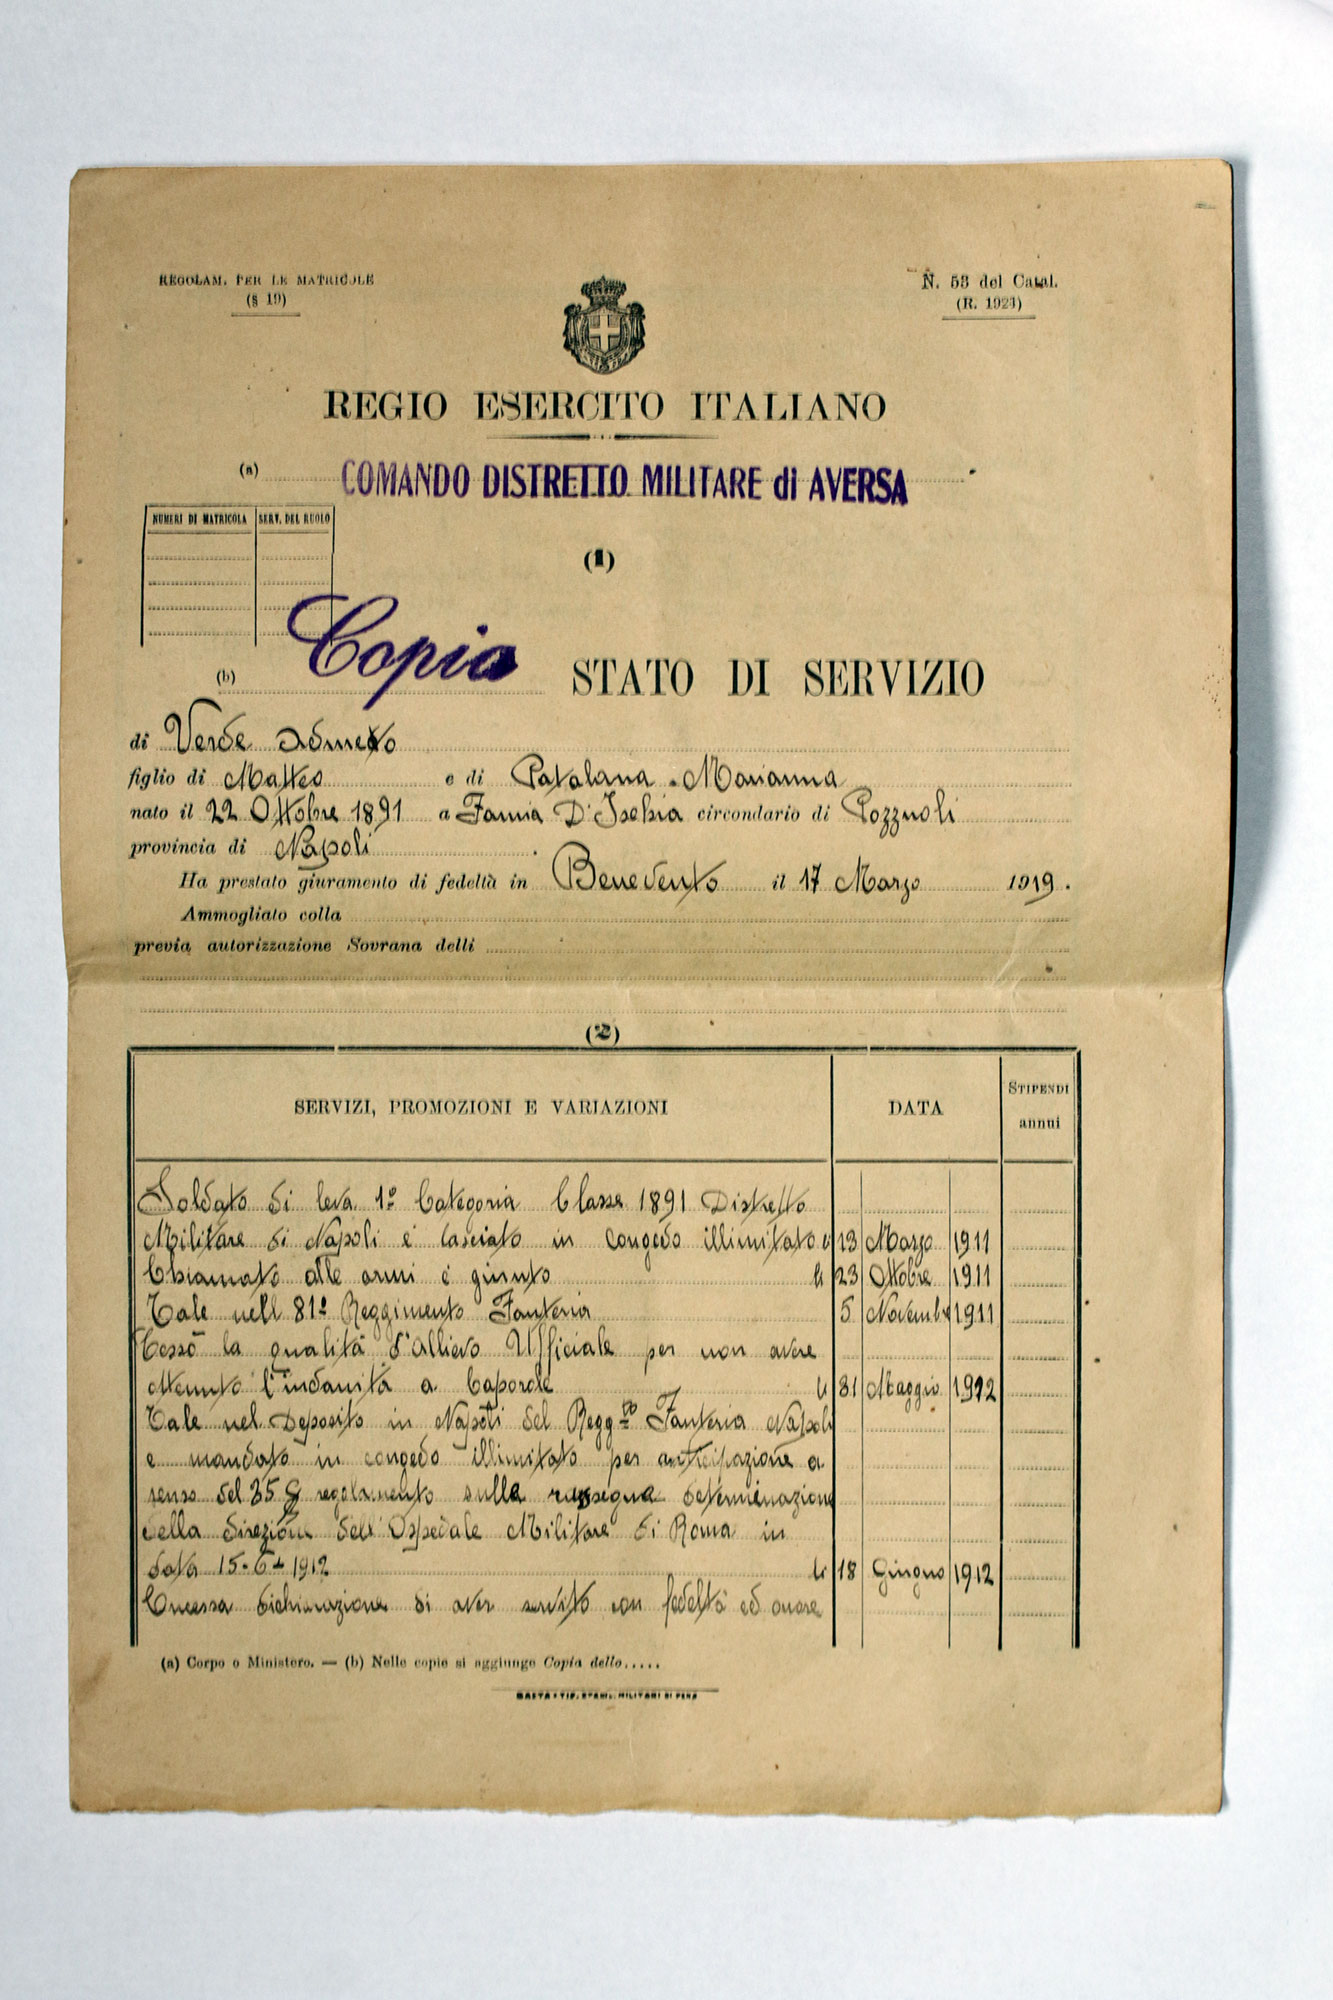 REGOLAM. PER LE MATRICOLE
(§ 19)
N. 53 del Catal.
(R. 1924)
REGIO ESERCITO ITALIANO
(a) COMANDO DISTRETTO MILITARE di AVERSA
NUMERI DI MATRICOLA SERV. DEL RUOLO
(1)
(b) Copia STATO DI SERVIZIO
di Verde Admeto
figlio di Matteo e di Patalana Marianna
nato il 22 Ottobre 1891 a D'Ischia circondario di Pozzuoli
provincia di Napoli
Ha prestato giuramento di fedeltà in Benevento il 17 Marzo 1919.
Ammogliato colla
previa autorizzazione Sovrana delli
(2)
SERVIZI, PROMOZIONI E VARIAZIONI DATA STIPENDI annui
Soldato di leva 1ª Categoria Classe 1891 Distretto
Militare di Napoli e lasciato in congedo illimitato li 13 Marzo 1911
Chiamato alle armi e giunto li 23 Ottobre 1911
Tale nell 81º Reggimento Fanteria 5 Novembre 1911
Cessò la qualità d'Allievo Ufficiale per non avere
ottenuto l'indonità a Caporale li 31 Maggio 1912
Tale nel Deposito in Napoli del Reggto Fanteria Napoli
e mandato in congedo illimitato per anticipazione a
senso del 35 § regolamento sulla rassegna determinazione
della direzione dell'Ospedale Militare di Roma in
data 15-6-1912 li 18 Giugno 1912
Concessa dichiarazione di aver servito con fedeltà ed onore
(a) Corpo o Ministero. — (b) Nelle copie si aggiunge Copia dello.....
GAETA - TIP. STABIL. MILITARI DI PENA